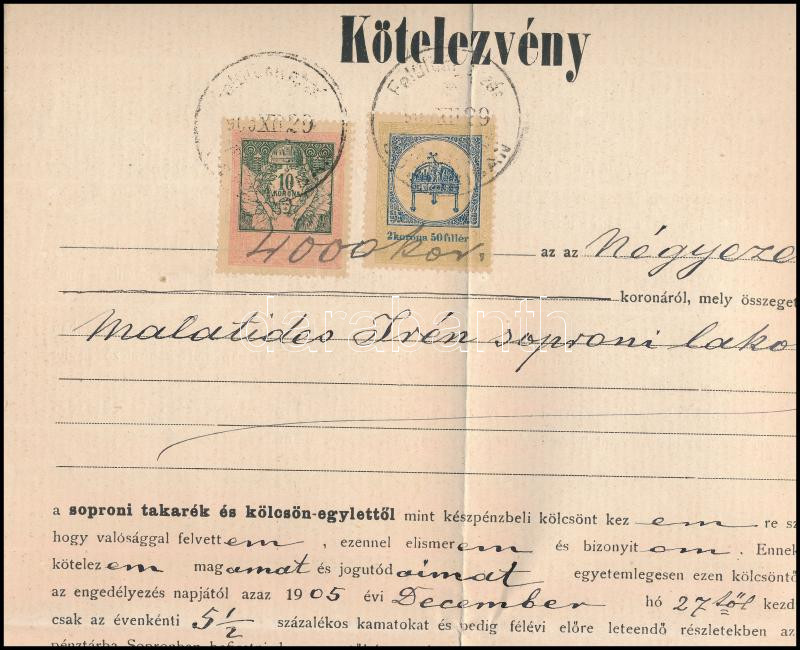 Kötelezvény
XII 29 XII 29
10
KORONA
2 korona 50 fillér
4000 kor. az az Négyeze
koronáról, mely összeget
Malatides Irén soproni lako
darabanth
a soproni takarék és kölcsön-egylettől mint készpénzbeli kölcsönt kez em re sz
hogy valósággal felvett em , ezennel elismer em és bizonyit om . Ennek
kötelez em mag amat és jogutód aimat egyetemlegesen ezen kölcsöntő
az engedélyezés napjától azaz 1905 évi December hó 27 től kezd
csak az évenkénti 5 1/2 százalékos kamatokat és pedig félévi előre leteendő részletekben az
pénztárba Sopronban